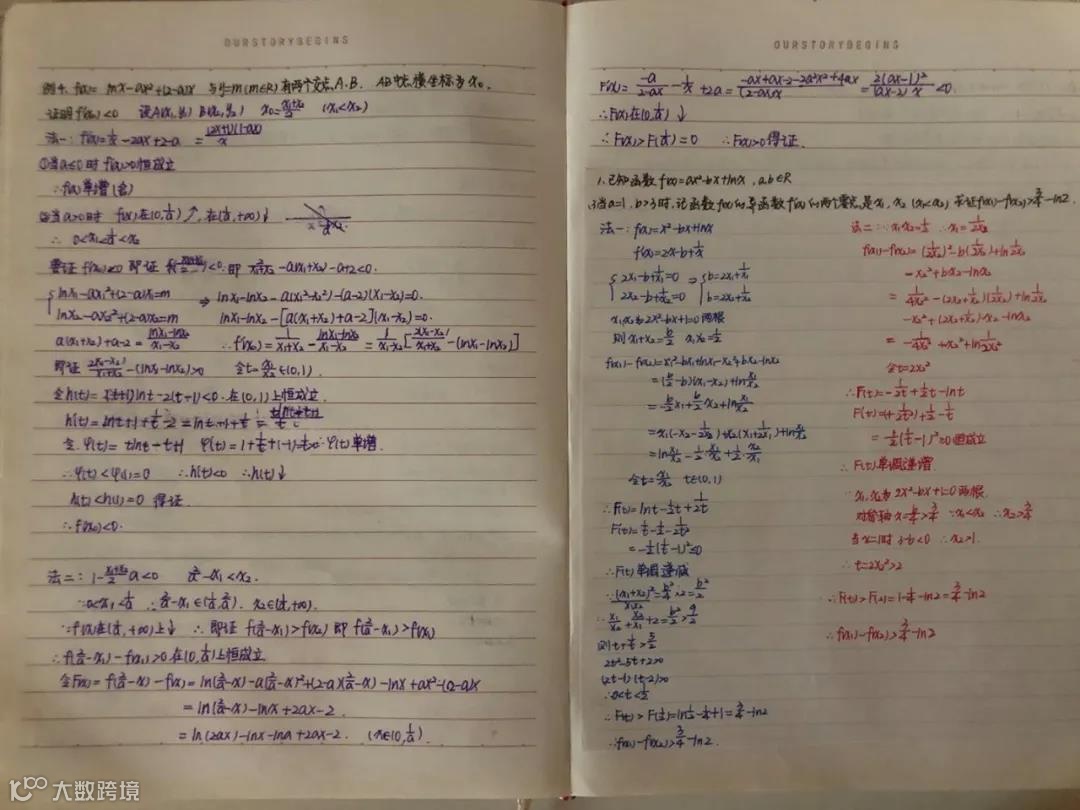 OURSTORYBEGINS
例4. f(x)= lnx-ax²+(2-a)x 与y=m(m∈R)有两个交点A.B. AB中点横坐标为x₀.
证明f'(x₀)<0 设A(x₁,y₁) B(x₂,y₂) x₀=(x₁+x₂)/2 (x₁<x₂)
法一: f'(x)=1/x-2ax+2-a = (2x+1)(1-ax)/x
①当a≤0时 f'(x)>0恒成立
∴f(x)单增(舍)
②当a>0时 f(x)在(0,1/a)↗, 在(1/a,+∞)↓
∴ 0<x₁<1/a<x₂
要证f'(x₀)<0 即证 f'((x₁+x₂)/2)<0. 即 2/(x₁+x₂)-a(x₁+x₂)-a+2<0.
{lnx₁-ax₁²+(2-a)x₁=m ⇒ lnx₁-lnx₂-a(x₁²-x₂²)-(a-2)(x₁-x₂)=0.
lnx₂-ax₂²+(2-a)x₂=m lnx₁-lnx₂-[a(x₁+x₂)+a-2](x₁-x₂)=0.
a(x₁+x₂)+a-2=(lnx₁-lnx₂)/(x₁-x₂) ∴f'(x₀)=2/(x₁+x₂)-(lnx₁-lnx₂)/(x₁-x₂)=1/(x₁-x₂)[2(x₁-x₂)/(x₁+x₂)-(lnx₁-lnx₂)]
即证 2(x₁-x₂)/(x₁+x₂)-(lnx₁-lnx₂)>0 令t=x₁/x₂∈(0,1).
令h(t)=(t+1)lnt-2(t-1)<0.在(0,1)上恒成立.
h'(t)=lnt+1+1/t-2=lnt-1+1/t=(tlnt-t+1)/t
令φ(t)=tlnt-t+1
φ(t)单增.
∴φ(t)<φ(1)=0 ∴h'(t)<0 ∴h(t)↓
h(t)<h(1)=0 得证.
∴f'(x₀)<0.
法二: 1-(x₁+x₂)/2 a<0 2/a-x₁<x₂.
∵0<x₁<1/a ∴2/a-x₁∈(1/a,2/a). x₂∈(1/a,+∞).
∵f(x)在(1/a,+∞)上↓ ∴即证 f(2/a-x₁)>f(x₂) 即 f(2/a-x₁)>f(x₁)
∴f(2/a-x₁)-f(x₁)>0在(0,1/a)上恒成立
令F(x)=f(2/a-x)-f(x)=ln(2/a-x)-a(2/a-x)²+(2-a)(2/a-x)-lnx+ax²-(2-a)x
=ln(2/a-x)-lnx+2ax-2.
=ln(2-ax)-lnx-lna+2ax-2. (x∈(0,1/a).
OURSTORYBEGINS
F'(x)=-a/(2-ax)-1/x+2a=(-ax+ax-2-2a²x²+4ax)/((2-ax)x)=2(ax-1)²/((ax-2)x)<0.
∴F(x)在(0,1/a)↓
∴F(x)>F(1/a)=0 ∴F(x)>0得证.
1.已知函数f(x)=ax²-bx+lnx, a.b∈R
(3)当a=1, b>3时, 记函数f(x)的导函数f'(x)的两个零点是x₁, x₂ (x₁<x₂) 求证f(x₁)-f(x₂)>3/4-ln2.
法一: f(x)=x²-bx+lnx
f'(x)=2x-b+1/x
{2x₁-b+1/x₁=0 ⇒ {b=2x₁+1/x₁
2x₂-b+1/x₂=0 b=2x₂+1/x₂
x₁,x₂为2x²-bx+1=0两根
则x₁+x₂=b/2 x₁x₂=1/2
f(x₁)-f(x₂)=x₁²-bx₁+lnx₁-x₂²+bx₂-lnx₂
=(b/2-b)(x₁-x₂)+ln x₁/x₂
=-b/2 x₁+b/2 x₂+ln x₁/x₂
=x₁(-x₂-1/(2x₂))+x₂(x₁+1/(2x₁))+ln x₁/x₂
=ln x₁/x₂-1/2·x₁/x₂+1/2·x₂/x₁
令t=x₁/x₂ t∈(0,1)
∴F(t)=lnt-1/2t+1/2t
F'(t)=1/t-1/2-1/2t²
=-1/2(1/t-1)²≤0
∴F(t)单调递减
∵(x₁+x₂)²/x₁x₂=b²/4×2=b²/2
∴x₁/x₂+x₂/x₁+2=b²/2>9/2
则t+1/t>5/2
2t²-5t+2>0
(2t-1)(t-2)>0
∴0<t<1/2
∴F(t)>F(1/2)=ln1/2-1/4+1=3/4-ln2
∴f(x₁)-f(x₂)>3/4-ln2.
法二: ∵x₁x₂=1/2 ∴x₁=1/(2x₂)
f(x₁)-f(x₂)=(1/(2x₂))²-b(1/(2x₂))+ln1/(2x₂)
-x₂²+bx₂-lnx₂
=1/(4x₂²)-(2x₂+1/x₂)(1/(2x₂))+ln1/(2x₂)
-x₂²+(2x₂+1/x₂)·x₂-lnx₂
=-1/(4x₂²)+x₂²+ln1/(2x₂²)
令t=2x₂²
∴F(t)=-1/2t+1/2t-lnt
=1/2(1/t-1)²≥0恒成立
∴F(t)单调递增
∵x₁,x₂为2x²-bx+1=0两根.
对称轴x=b/4>3/4 ∵x₁<x₂ ∴x₂>3/4
当x=1时 3-b<0 ∴x₂>1.
∴t=2x₂²>2
∴F(t)>F(2)=1-1/4-ln2=3/4-ln2
∴f(x₁)-f(x₂)>3/4-ln2
大数跨境